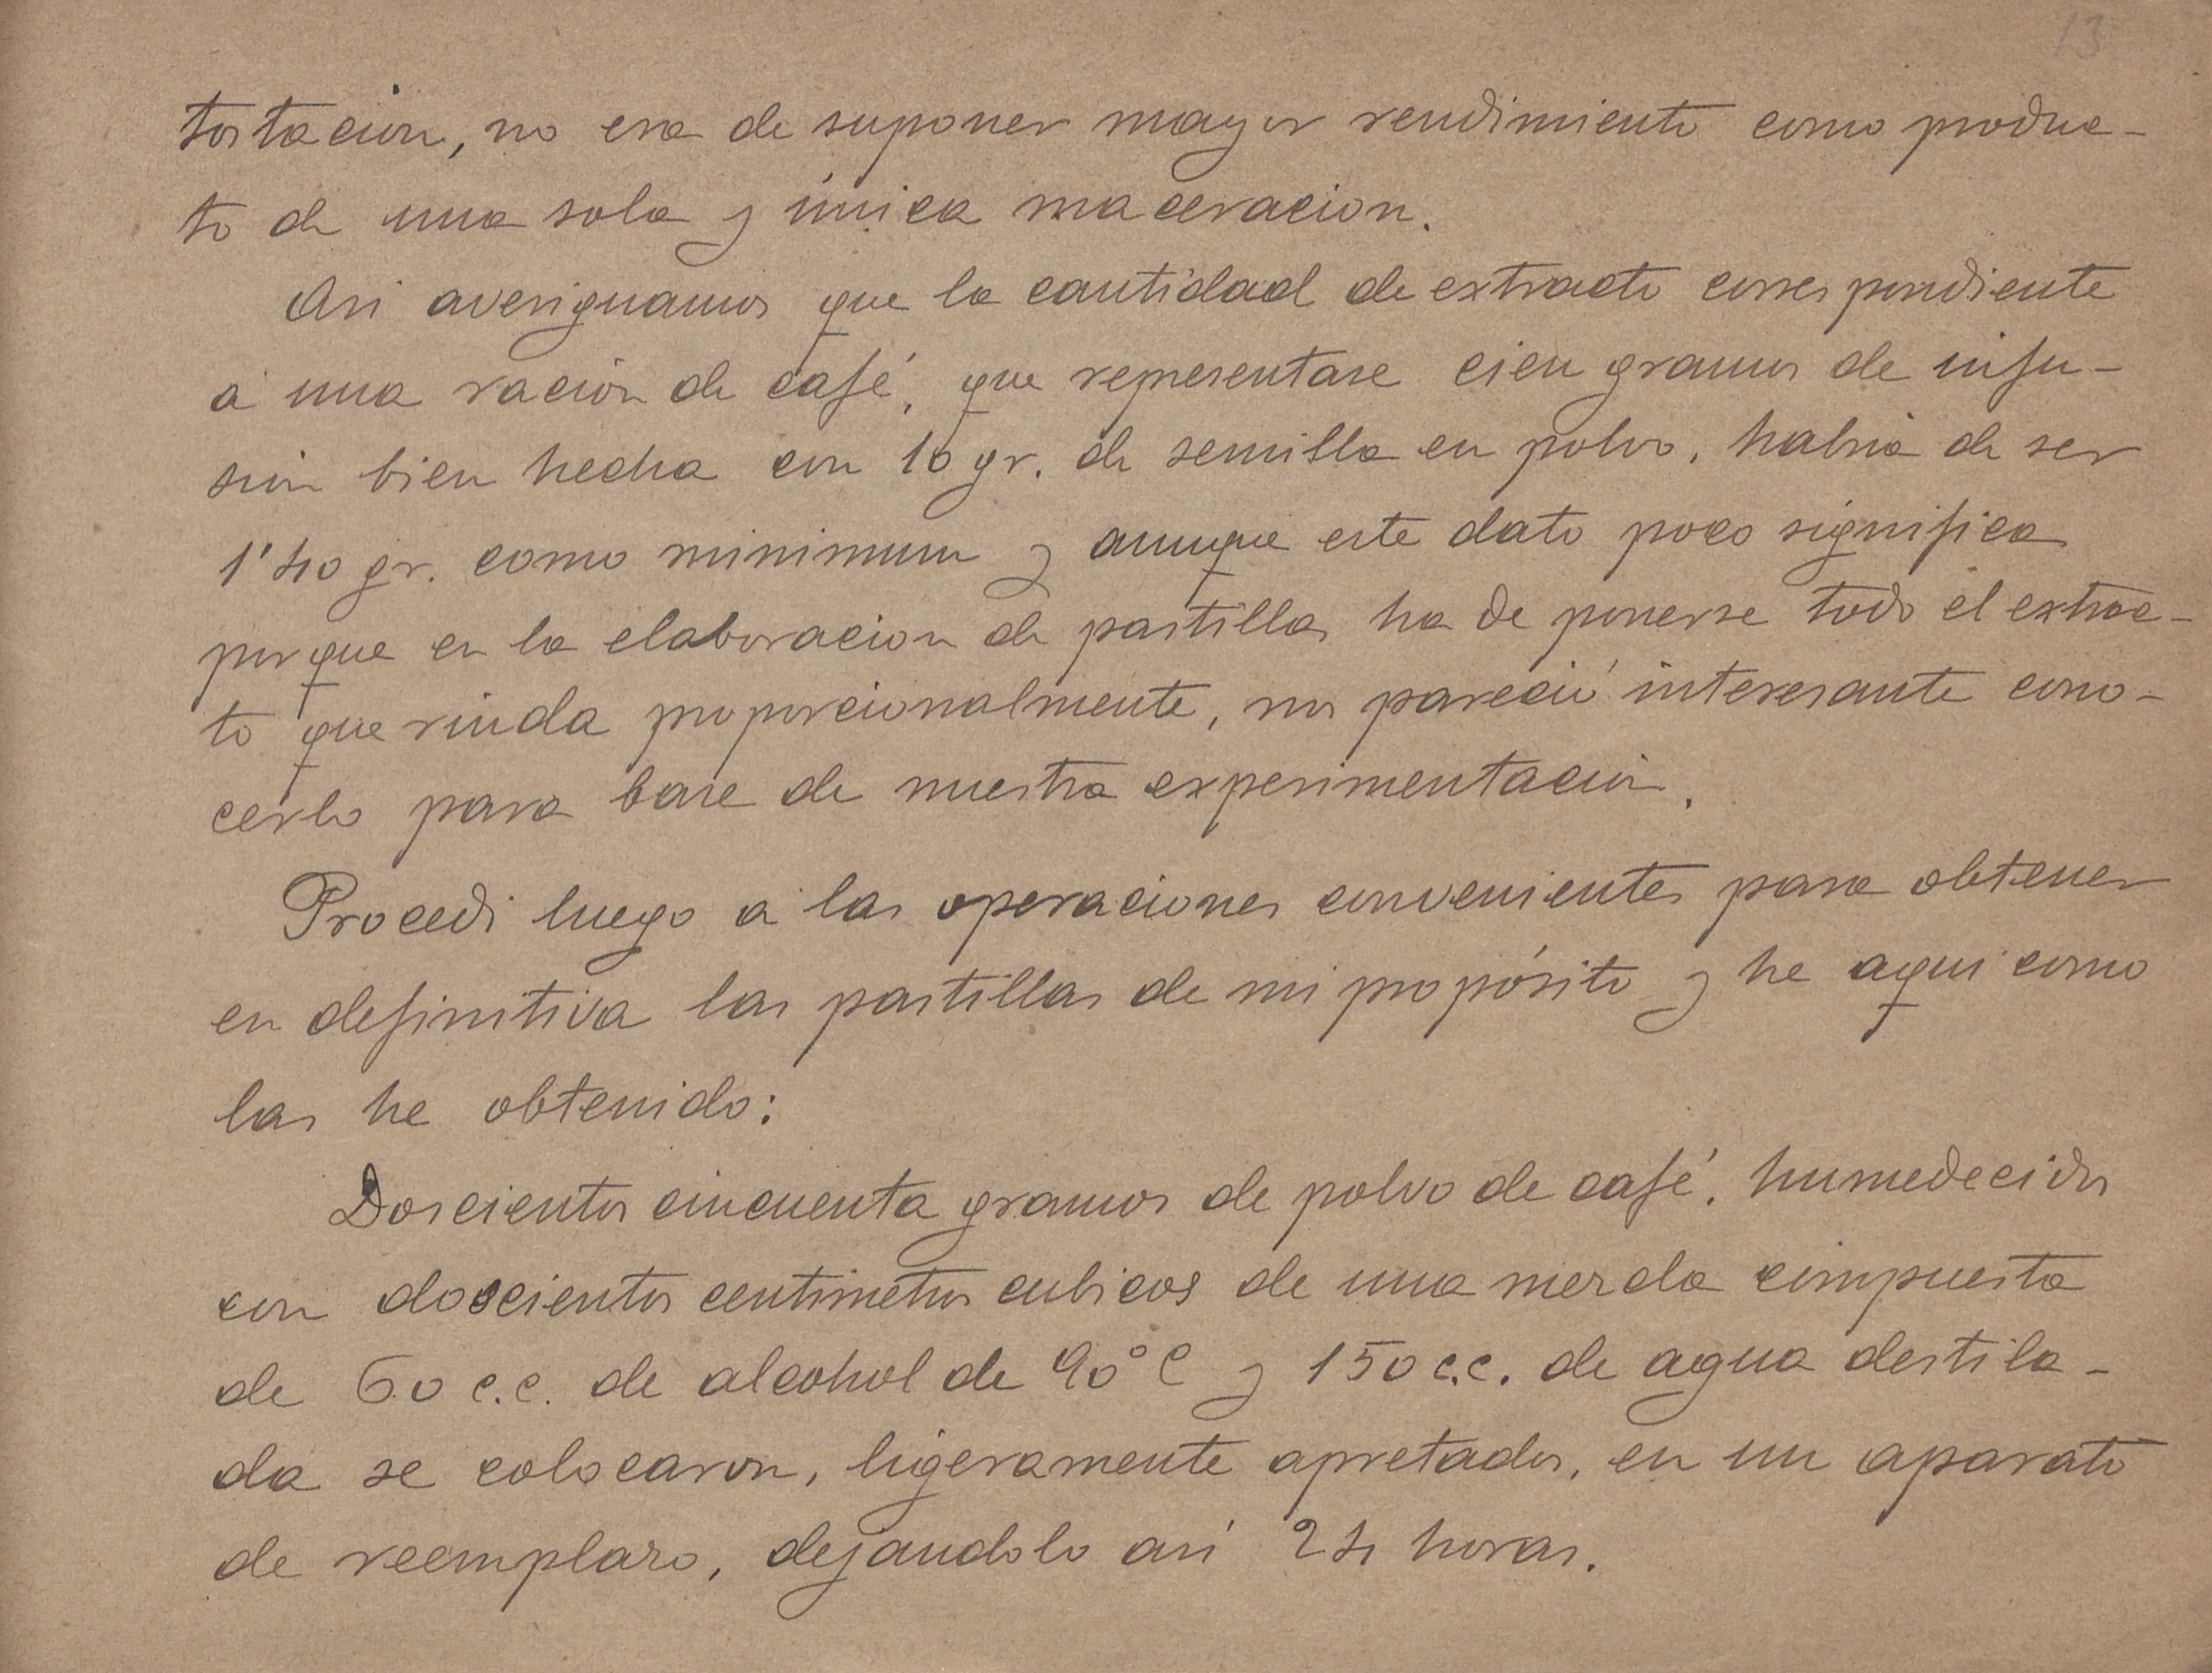 13
tostacion, no era de suponer mayor rendimiento como produc-
to de una sola y única maceracion.
Asi averiguamos que la cantidad de extracto correspondiente
á una ración de café, que representase cien gramos de infu-
sión bien hecha con 10 gr. de semilla en polvo, habria de ser
1'40 gr. como minimum y aunque este dato poco significa
porque en la elaboracion de pastillas ha de ponerse todo el extrac-
to que rinda proporcionalmente, nos pareció interesante cono-
cerlo para base de nuestra experimentación.
Procedi luego á las operaciones convenientes para obtener
en definitiva las pastillas de mi propósito y he aqui como
las he obtenido:
Doscientos cincuenta gramos de polvo de café, humedecidos
con doscientos centimetros cubicos de una mezcla compuesta
de 60 c.c. de alcohol de 90° C y 150 c.c. de agua destila-
da se colocaron, ligeramente apretados, en un aparato
de reemplazo, dejandolo así 24 horas.